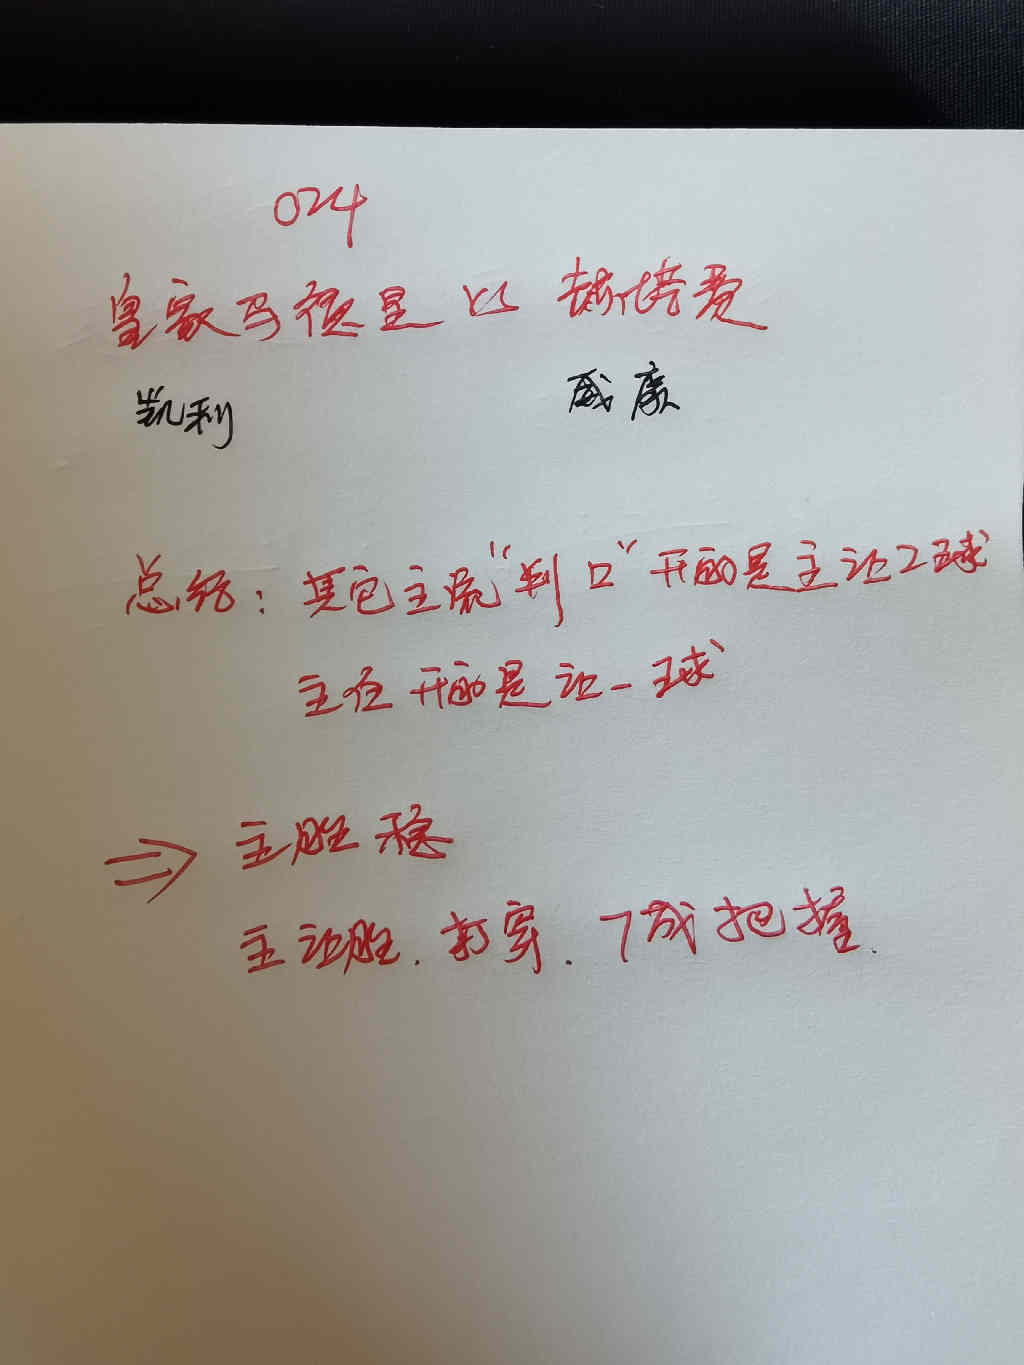 024
皇家马德里 VS 赫塔费
凯利 威廉
总结：其它主流“判口”开的是主让2球
主任开的是让一球
⇒ 主胜稳
主让胜．打穿．7成把握．